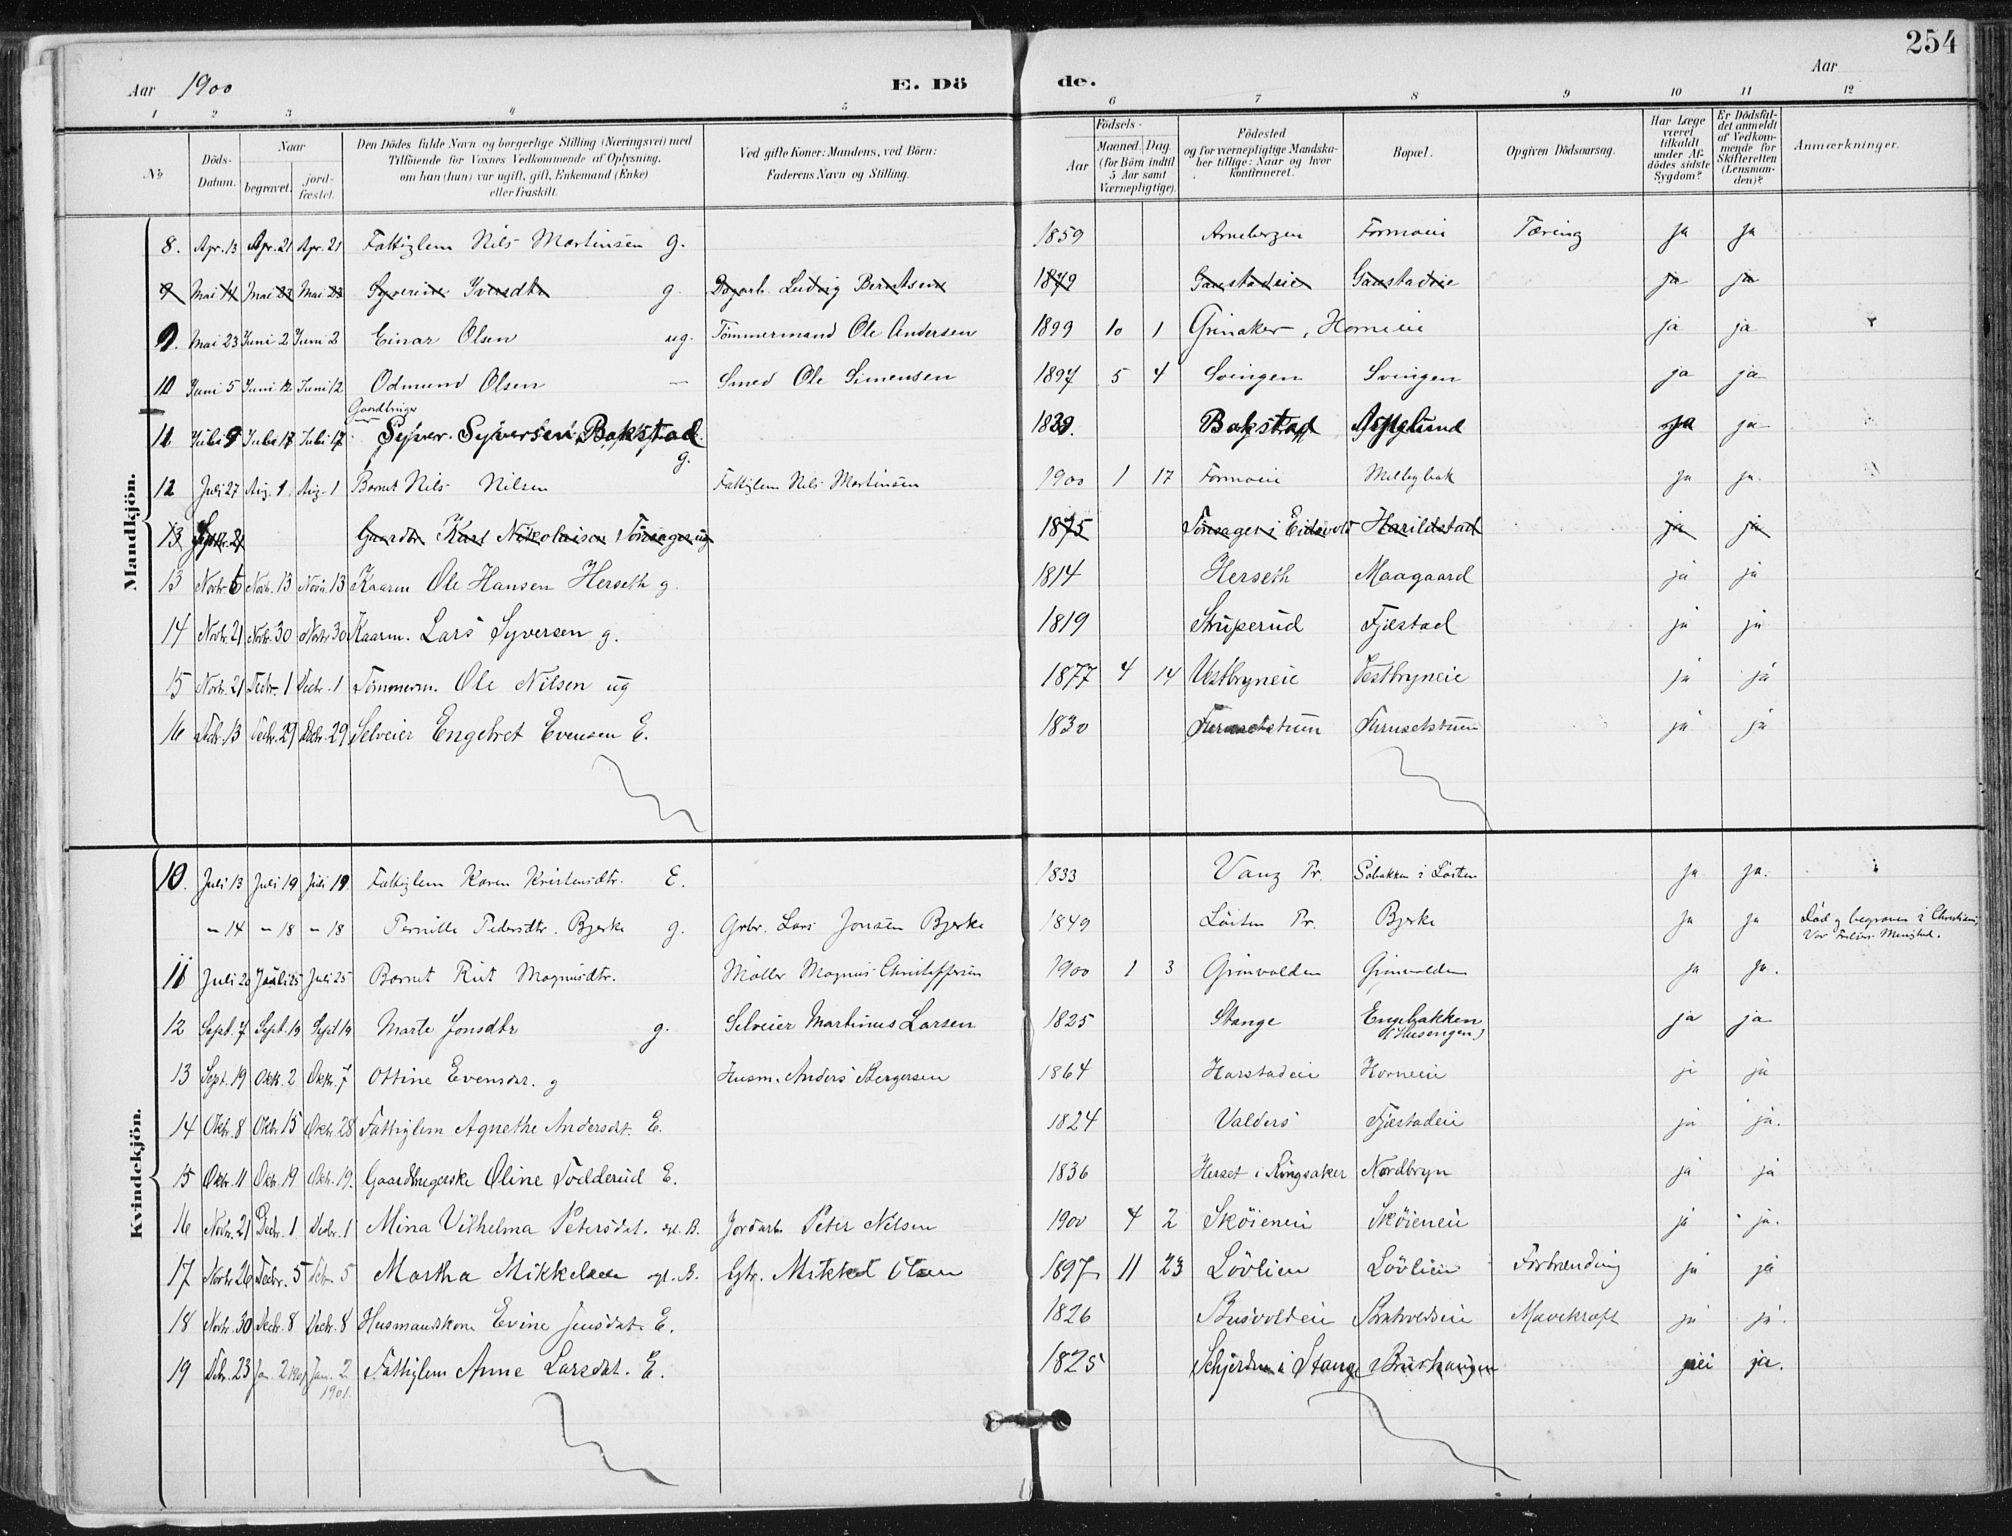 254
Aar 1900 E. Dö de. Aar
1 2 3 4 5 6 7 8 9 10 11 12
No Döds-Datum. Naar begravet. jord-fæstet. Den Dödes fulde Navn og borgerlige Stilling (Næringsvei) med Tilföiende for Voxnes Vedkommende af Oplysning, om han (hun) var ugift, gift, Enkemand (Enke) eller fraskilt. Ved gifte Koner: Mandens, ved Börn: Faderens Navn og Stilling. Födsels- Aar Maaned. Dag. (for Börn indtil 5 Aar samt Værnepligtige). Födested og for værnepligtige Mandskaber tillige: Naar og hvor konfirmeret. Bopæl. Opgiven Dödsaarsag. Har Læge været tilkaldt under Afdödes sidste Sygdom? Er Dödsfaldet anmeldt af Vedkommende for Skifteretten (Lensmanden)? Anmærkninger.
Mandkjön.
8. Apr. 13 Apr. 21 Apr. 21 Fattiglem Nils Martinsen g. 1859 Arnebergen Formoeie Tæring ja ja
9 Mai 14 Mai 23 Mai 23 Syverine Iversdtr g. Dagarb. Ludvig Berntsen 1879 Gaustadeie Gaustadeie ja ja
9. Mai 23 Juni 2 Juni 2 Einar Olsen ug. Tömmermand Ole Andersen 1899 10 1 Grinaker, Horneie ja ja
10 Juni 5 Juni 12 Juni 12 Odmund Olsen — Smed Ole Simensen 1897 5 4 Svingen Svingen ja ja
11 Juli 9 Juli 17 Juli 17 Gaardbruger Syver Syversen Bakstad g. 1839. Bakstad ja ja
12 Juli 27 Aug. 1 Aug. 1 Barnet Nils Nilsen Fattiglem Nils Martinsen 1900 1 17 Formoeie Melbybak ja ja.
13 Septbr. 21 Gaardbr. Karl Nikolaisen Tönsager ug 1875 Tönsager i Eidsvold Harildstad ja ja
13 Novbr. 6 Novbr. 13 Novbr. 13 Kaarm Ole Hansen Herseth g. 1814 Herseth Maagaard ja ja
14 Novbr. 21 Novbr. 30 Novbr. 30 Kaarm. Lars Syversen g. 1819 Struperud Fjæstad ja ja
15 Novbr. 21 Decbr. 1 Decbr. 1 Tömmerm. Ole Nilsen ug 1877 4 14 Vestbryneie Vestbryneie ja ja
16 Decbr. 13 Decbr. 29 Decbr. 29 Selveier Engebret Evensen E. 1830 Furusetstuen Furusetstuen ja ja
Kvindekjön.
10. Juli 13 Juli 19 Juli 19 Fattiglem Karen Kristensdtr. E. 1833 Vang Pr. Sobakken i Löiten ja ja.
" 14 " 18 " 18 Pernille Pedersdtr. Bjerke g. Grbr. Lars Jonsen Bjerke 1849 Löiten Pr. Bjerke ja ja Död og begraven i Christiania, Vor Frelsers Menighed.
11 Juli 20 Juli 25 Juli 25 Barnet Rut Magnusdtr. Möller Magnus Christoffersen 1900 1 3 Grönvolden Grönvolden ja ja.
12 Sept. 7 Sept. 19 Sept 19 Marte Jonsdtr g. Selveier Martinus Larsen 1825 Stange Engebakken (Husengen) ja ja
13 Sept. 19 Oktr. 2 Oktr. 7 Ottine Evensdtr. g Husm. Anders Bergersen 1864 Harstadeie Horneie ja ja
14 Oktr. 8 Oktr. 15 Oktr. 28 Fattiglem Agnethe Andersdt. E. 1824 Valders Fjæstadeie ja ja.
15 Oktr. 11 Oktr. 19 Oktr. 19. Gaardbrugerske Oline Todderud E. 1836 Herset i Ringsaker Nordbryn ja ja
16 Novbr. 21 Decbr. 1 Decbr. 1 Mina Vilhelma Petersdat. egt. B. Jordarb. Peter Nilsen 1900 4 2 Sköieneie Sköieneie ja ja.
17 Novbr. 26 Decbr. 5 Decbr. 5 Martha Mikkelsen egt. B. Gbr. Mikkel Olsen 1897 11 23 Lövlien Lövlien Forbrænding ja ja
18 Novbr. 30 Decbr. 8 Decbr. 8 Husmandskone Evine Jensdat. E. 1826 Busvoldeie Mavekræft ja ja.
19 Decbr. 23 Jan. 2 1901 Jan. 2 1901. Fattiglem Anne Larsdat. E. 1825 Schjerden i Stange Brushaugen nei ja.